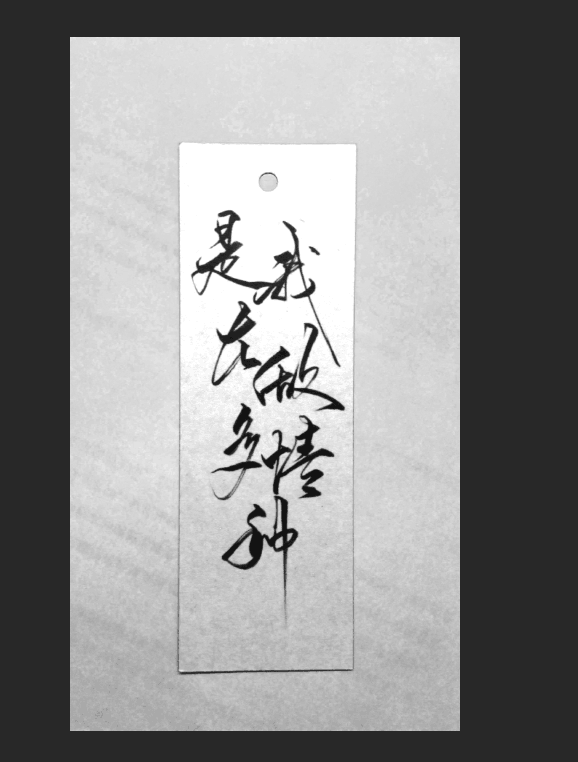 是我
在做
多情
种